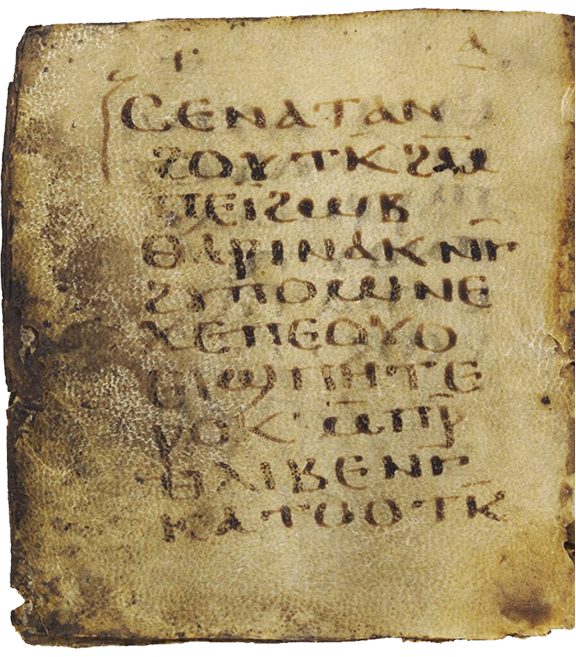 ⲥⲉⲛⲁⲧⲁⲛ
ϩⲟⲩⲧⲕ ϩⲙ̄
ⲡⲉⲓϩⲱⲃ
ⲑⲁⲣⲓ ⲛⲁⲕ ⲛⲅ̄
ϩⲩⲡⲟⲙⲓⲛⲉ
ϫⲉ ⲡⲉⲟⲩⲟ
ⲉⲓϣ ⲡⲏⲧ ⲉ
ⲣⲟⲕ· ⲙ̄ⲡⲣ̄
ⲑⲗⲓⲃⲉ ⲛⲅ̄
ⲕⲁⲧⲟⲟⲧⲕ̄